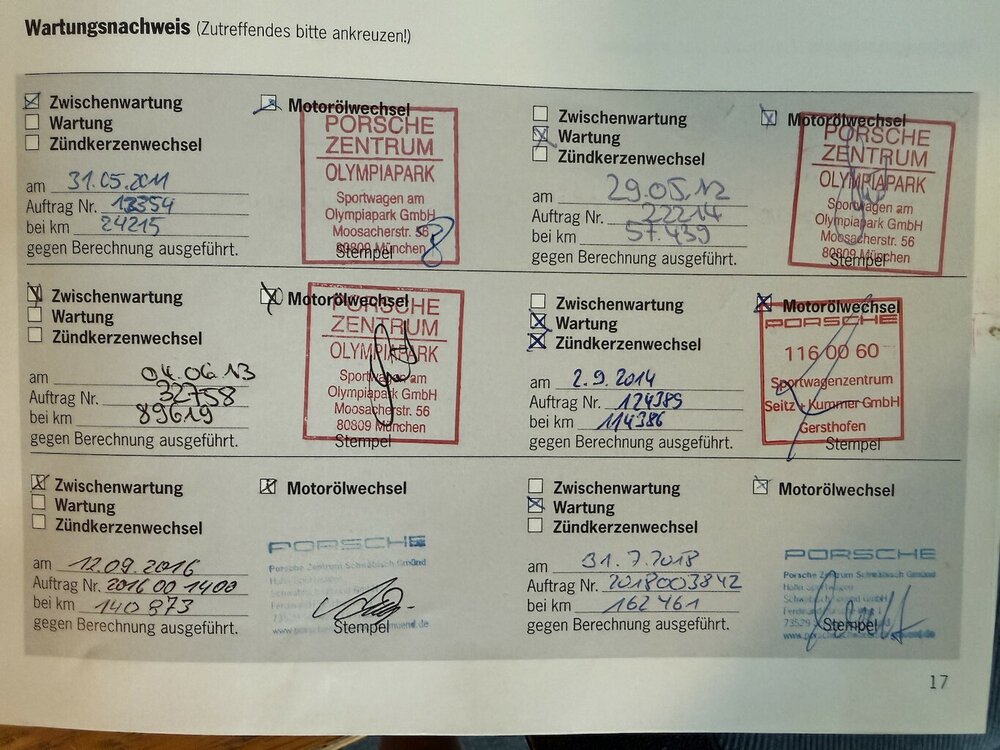 Wartungsnachweis (Zutreffendes bitte ankreuzen!)
Zwischenwartung
Motorölwechsel
Wartung
Zündkerzenwechsel
am 31.05.2011
Auftrag Nr. 13354
bei km 24215
gegen Berechnung ausgeführt.
PORSCHE
ZENTRUM
OLYMPIAPARK
Sportwagen am
Olympiapark GmbH
Moosacherstr. 56
80809 München
Stempel
Zwischenwartung
Motorölwechsel
Wartung
Zündkerzenwechsel
am 29.05.12
Auftrag Nr. 22214
bei km 57.439
gegen Berechnung ausgeführt.
PORSCHE
ZENTRUM
OLYMPIAPARK
Sportwagen am
Olympiapark GmbH
Moosacherstr. 56
80809 München
Stempel
Zwischenwartung
Motorölwechsel
Wartung
Zündkerzenwechsel
am 04.06.13
Auftrag Nr. 32758
bei km 89619
gegen Berechnung ausgeführt.
PORSCHE
ZENTRUM
OLYMPIAPARK
Sportwagen am
Olympiapark GmbH
Moosacherstr. 56
80809 München
Stempel
Zwischenwartung
Motorölwechsel
Wartung
Zündkerzenwechsel
am 2.9.2014
Auftrag Nr. 124389
bei km 114386
gegen Berechnung ausgeführt.
PORSCHE
116 00 60
Sportwagenzentrum
Seitz + Kummer GmbH
Gersthofen
Stempel
Zwischenwartung
Motorölwechsel
Wartung
Zündkerzenwechsel
am 12.09.2016
Auftrag Nr. 2016 00 1400
bei km 140 873
gegen Berechnung ausgeführt.
PORSCHE
Porsche Zentrum Schwäbisch Gmünd
Stempel
Zwischenwartung
Motorölwechsel
Wartung
Zündkerzenwechsel
am 31.7.2018
Auftrag Nr. 2018003842
bei km 162 461
gegen Berechnung ausgeführt.
PORSCHE
Porsche Zentrum Schwäbisch Gmünd
Stempel
17